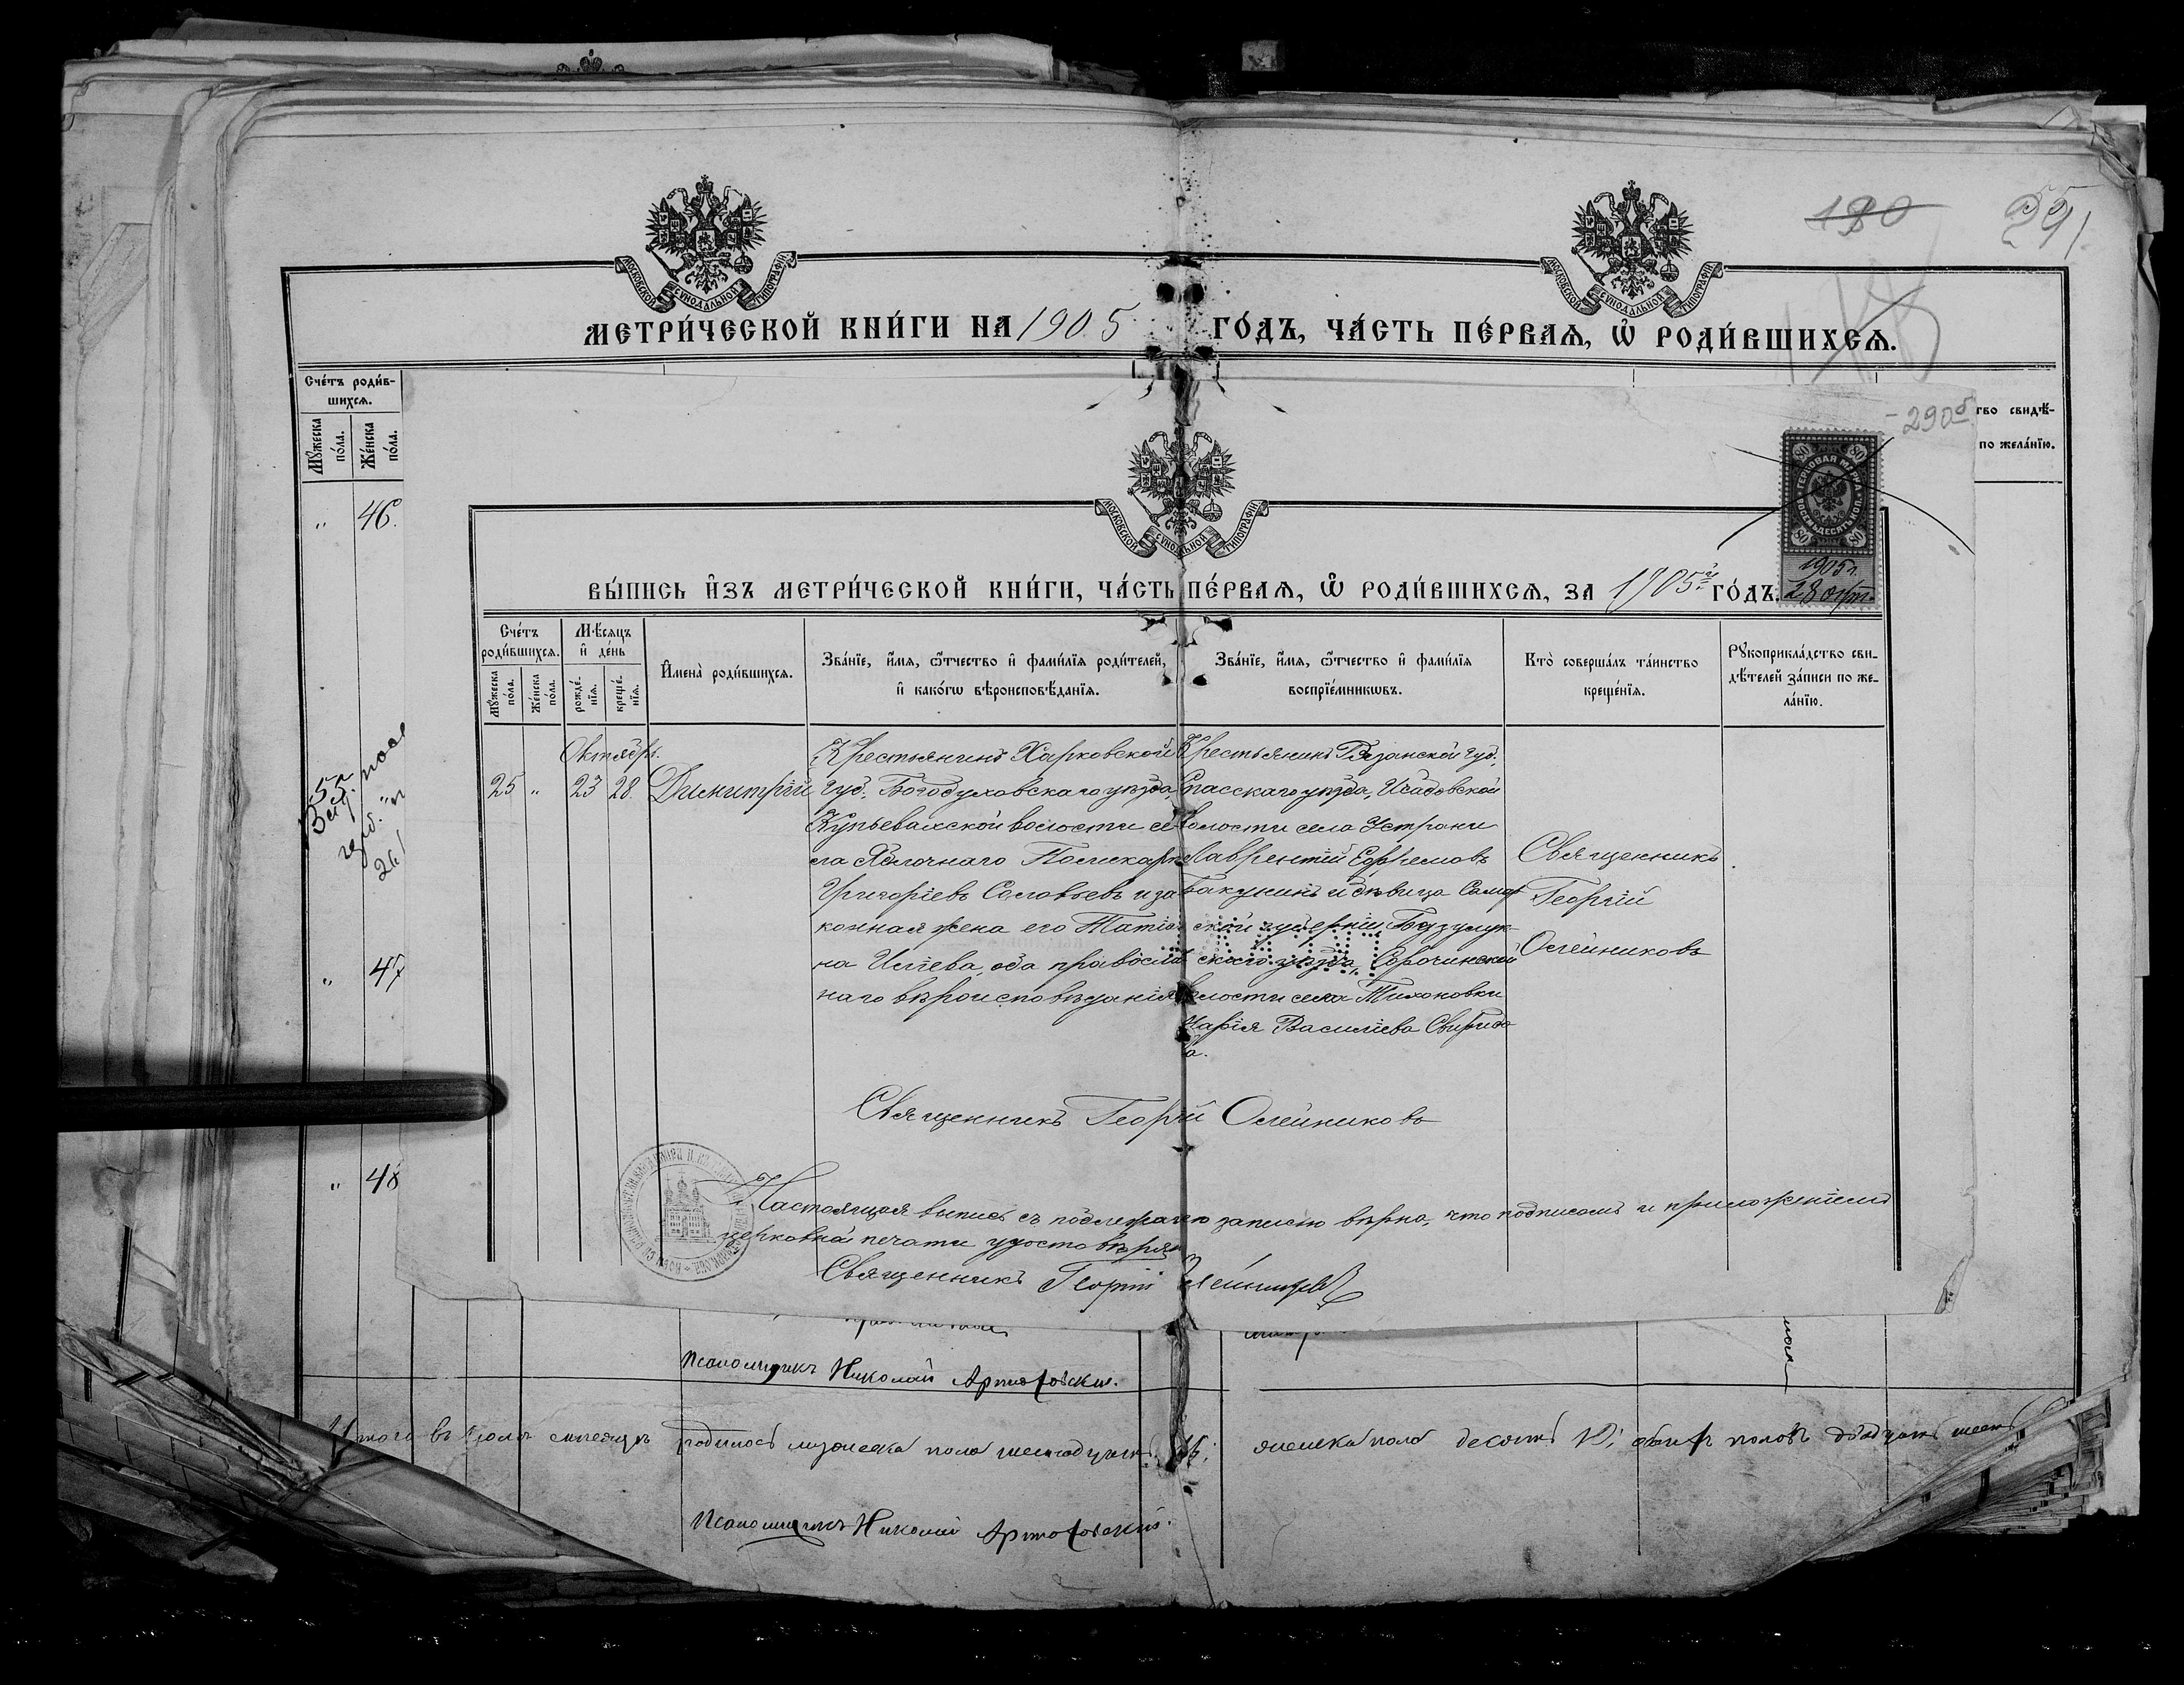 190
МОСКОВСКОЙ СѴНОДАЛЬНОЙ ТИПОГРАФІИ
МОСКОВСКОЙ СѴНОДАЛЬНОЙ ТИПОГРАФІИ
МЕТРИ́ЧЕСКОЙ КНИ́ГИ НА 1905 ГО́ДЪ, ЧА́СТЬ ПЕ́РВАѦ, Ѡ҆ РОДИ́ВШИХСѦ.
Сче́тъ роди́в-
шихсѧ.
Мꙋ́жеска по́ла.
Же́нска по́ла.
„ 46.
„ 47
„ 48
тво свидѣ́-
по жела́нїю.
290 б
МОСКОВСКОЙ СѴНОДАЛЬНОЙ ТИПОГРАФІИ
80 80
ГЕРБОВАЯ МАРКА
ВОСЕМЬДЕСЯТЪ КОП.
80 80
1905 г.
28 окт.
ВЫ́ПИСЬ И҆ЗЪ МЕТРИ́ЧЕСКОЙ КНИ́ГИ, ЧА́СТЬ ПЕ́РВАѦ, Ѡ҆ РОДИ́ВШИХСѦ, ЗА 1905й ГО́ДЪ.
Сче́тъ роди́вшихсѧ.
Мꙋ́жеска по́ла.
Же́нска по́ла.
Мѣ́сѧцъ и҆ де́нь
рожде́нїѧ.
креще́нїѧ.
И҆мена̀ роди́вшихсѧ.
Зва́нїе, и҆́мѧ, ѻ҆́тчество и҆ фами́лїѧ роди́телей,
и҆ како́гѡ вѣроисповѣ́данїѧ.
Зва́нїе, и҆́мѧ, ѻ҆́тчество и҆ фами́лїѧ
воспрїе́мникѡвъ.
Кто̀ соверша́лъ та́инство
креще́нїѧ.
Рꙋкоприкла́дство сви-
дѣ́телей за́писи по же-
ла́нїю.
Октябрь.
25 „ 23 28. Димитрій
Крестьянинъ Харковской
губ. Богодуховскаго уѣзда,
Купьевахской волости се
ла Яблочнаго Поликарп
Григоріевъ Соловьевъ и за
конная жена его Татія
на Иліева, оба православ
наго вѣроисповѣданія
Крестьянинъ Рязанской губ.
Спасскаго уѣзда, Ижевской
волости села Устрани
Лаврентій Ефремовъ
Бакунинъ и дѣвица Самар
ской губерніи, Бузулук-
скаго уѣзда, Сорочинской
волости села Тихоновки
Марія Василіева Свиридо
ва.
Священникъ
Георгій
Олейниковъ
Священникъ Георгій Олейниковъ
Настоящая выпись съ подлежащею записью вѣрна, что подписомъ и приложеніемъ
церковной печати удостовѣряю
Священникъ Георгій Олейниковъ
Псаломщикъ Николай
Итого въ Іюлѣ мѣсяцѣ родилось мужеска пола шестнадцать 16; женска пола десять 10; обоихъ половъ двадцать шесть
Псаломщикъ Николай